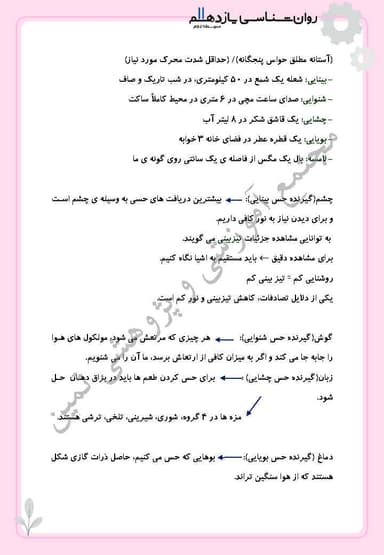 روان‌شناسی یازدهم
(آستانه مطلق حواس پنجگانه)/ (حداقل شدت محرک مورد نیاز)
-بینایی: شعله یک شمع در ۵۰ کیلومتری، در شب تاریک و صاف
-شنوایی: صدای ساعت مچی در ۶ متری در محیط کاملاً ساکت
-چشایی: یک قاشق شکر در ۸ لیتر آب
-بویایی: یک قطره عطر در فضای خانه ۳ خوابه
-لامسه: بال یک مگس از فاصله ی یک سانتی روی گونه ی ما
چشم(گیرنده حس بینایی): ← بیشترین دریافت های حسی به وسیله ی چشم است
و برای دیدن نیاز به نور کافی داریم.
به توانایی مشاهده جزئیات تیزبینی می گویند.
برای مشاهده دقیق ← باید مستقیم به اشیا نگاه کنیم.
روشنایی کم = تیز بینی کم
یکی از دلایل تصادفات، کاهش تیزبینی و نور کم است.
گوش(گیرنده حس شنوایی): ← هر چیزی که مرتعش می شود، مولکول های هوا
را جابه جا می کند و اگر به میزان کافی از ارتعاش برسد، ما آن را می شنویم.
زبان(گیرنده حس چشایی): ← برای حس کردن طعم ها باید در بزاق دهان حل
شود.
مزه ها در ۴ گروه، شوری، شیرینی، تلخی، ترشی هستند.
دماغ (گیرنده حس بویایی): ← بوهایی که حس می کنیم، حاصل ذرات گازی شکل
هستند که از هوا سنگین تراند.
مجتمع آموزشی و پژوهشی ثمین